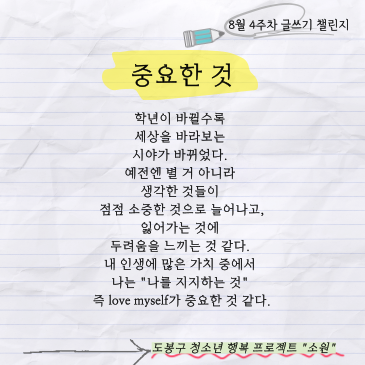 8월 4주차 글쓰기 챌린지
중요한 것
학년이 바뀔수록
세상을 바라보는
시야가 바뀌었다.
예전엔 별 거 아니라
생각한 것들이
점점 소중한 것으로 늘어나고,
잃어가는 것에
두려움을 느끼는 것 같다.
내 인생에 많은 가치 중에서
나는 "나를 지지하는 것"
즉 love myself가 중요한 것 같다.
도봉구 청소년 행복 프로젝트 "소원"